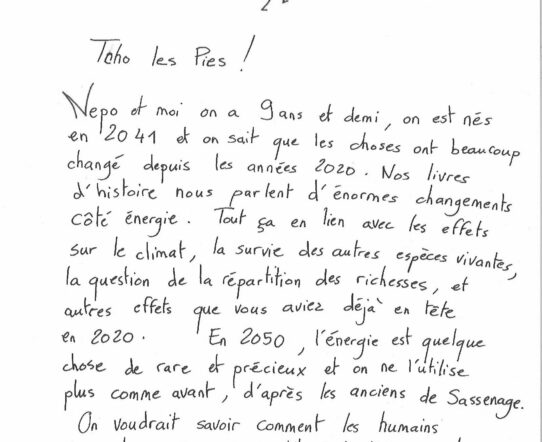 Tcho les Pies !
Nepo et moi on a 9 ans et demi, on est nés
en 2041 et on sait que les choses ont beaucoup
changé depuis les années 2020. Nos livres
d'histoire nous parlent d'énormes changements
côté énergie. Tout ça en lien avec les effets
sur le climat, la survie des autres espèces vivantes,
la question de la répartition des richesses, et
autres effets que vous aviez déjà en tête
en 2020. En 2050, l'énergie est quelque
chose de rare et précieux et on ne l'utilise
plus comme avant, d'après les anciens de Sassenage.
On voudrait savoir comment les humains